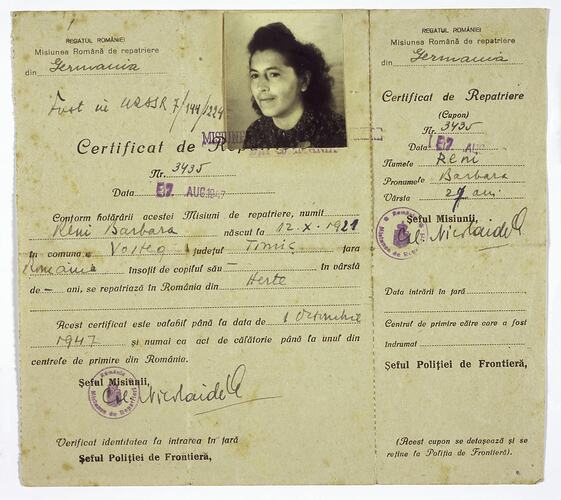 REGATUL ROMÂNIEI
Misiunea Română de repatriere
din Germania
Fost in URSSR 7/144/224
Certificat de Repatriere
Nr. 3435
Data 27 AUG. 1947
Conform hotărârii acestei Misiuni de repatriere, numit
Reni Barbara născut la 12.X.1921
în comuna Voiteg județul Timiș țara
Romania însoțit de copilul său — în bârstă
de — ani, se repatriază în România din Herte
Acest certificat este valabil până la data de 1 Octombrie
1947 și numai ca act de călătorie până la unul din
centrele de primire din România.
Șeful Misiunii,
Col. Nicolaide
Verificat identitatea la intrarea în țară
Șeful Poliției de Frontieră,
REGATUL ROMÂNIEI
Misiunea Română de repatriere
din Germania
Certificat de Repatriere
(Cupon)
Nr. 3435
Data 27 AUG
Numele Reni
Pronumele Barbara
Vârsta 27 ani
Șeful Misiunii,
Col. Nicolaide
Data intrării în țară
Centrul de primire către care a fost
îndrumat
Șeful Poliției de Frontieră,
(Acest cupon se detașează și se
reține la Poliția de Frontieră).